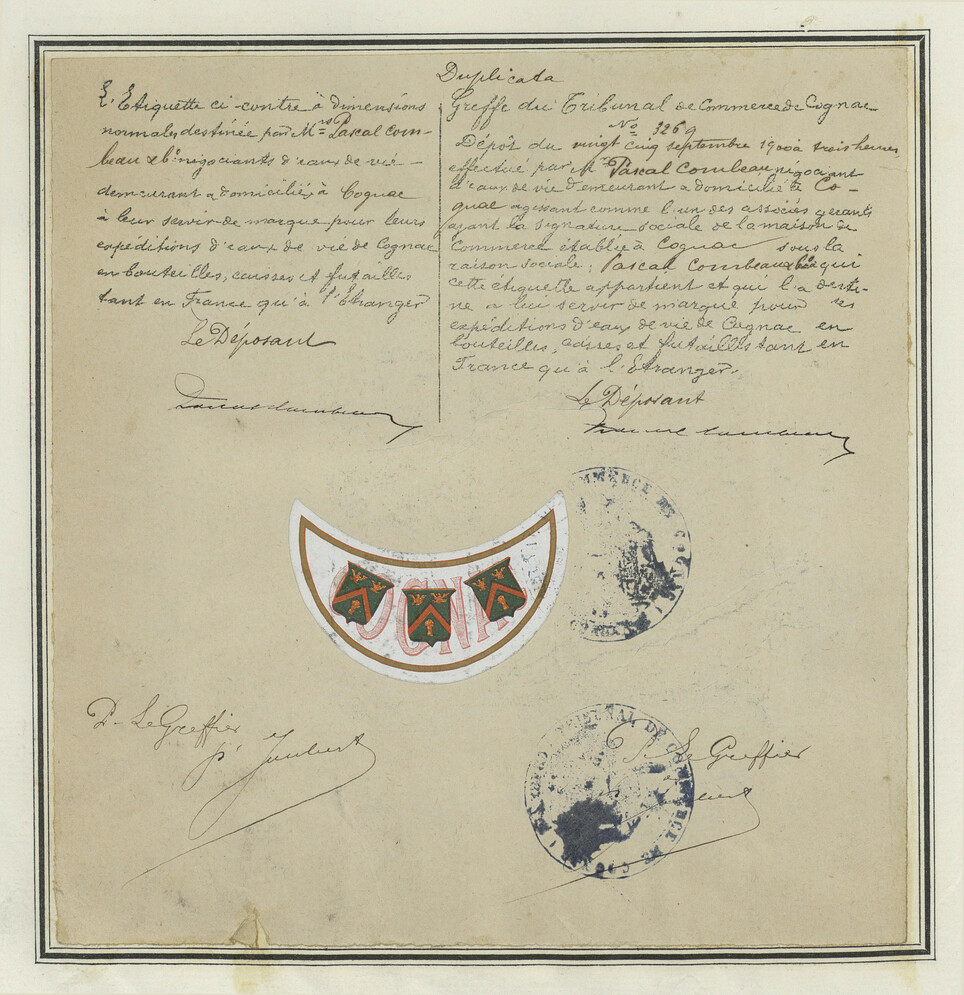 Duplicata
L'Etiquette ci-contre à dimensions
normales destinée par Mrs Pascal Com-
beau & Cie négociants d'eaux de vie
demeurant & domiciliés à Cognac
à leur servir de marque pour leurs
expéditions d'eaux de vie de Cognac
en bouteilles, caisses et futailles
tant en France qu'à l'Etranger
Le Déposant
Pascal Combeau
Greffe du Tribunal de Commerce de Cognac
No 3269
Dépôt du vingt cinq septembre 1900 à trois heures,
effectué par Mr Pascal Combeau négociant
d'eaux de vie demeurant & domicilié à Co-
gnac agissant comme l'un des associés gérants
ayant la signature sociale de la maison de
Commerce établie à Cognac sous la
raison sociale; Pascal Combeau & Cie qui
cette étiquette appartient et qui l'a desti-
née a lui servir de marque pour ses
expéditions d'eaux de vie de Cognac en
bouteilles, caisses et futailles tant en
France qu'à l'Etranger.
Le Déposant
Pascal Combeau
COGNAC
COMMERCE DE COGNAC
P. Le Greffier
P. Le Greffier
TRIBUNAL DE COMMERCE DE COGNAC